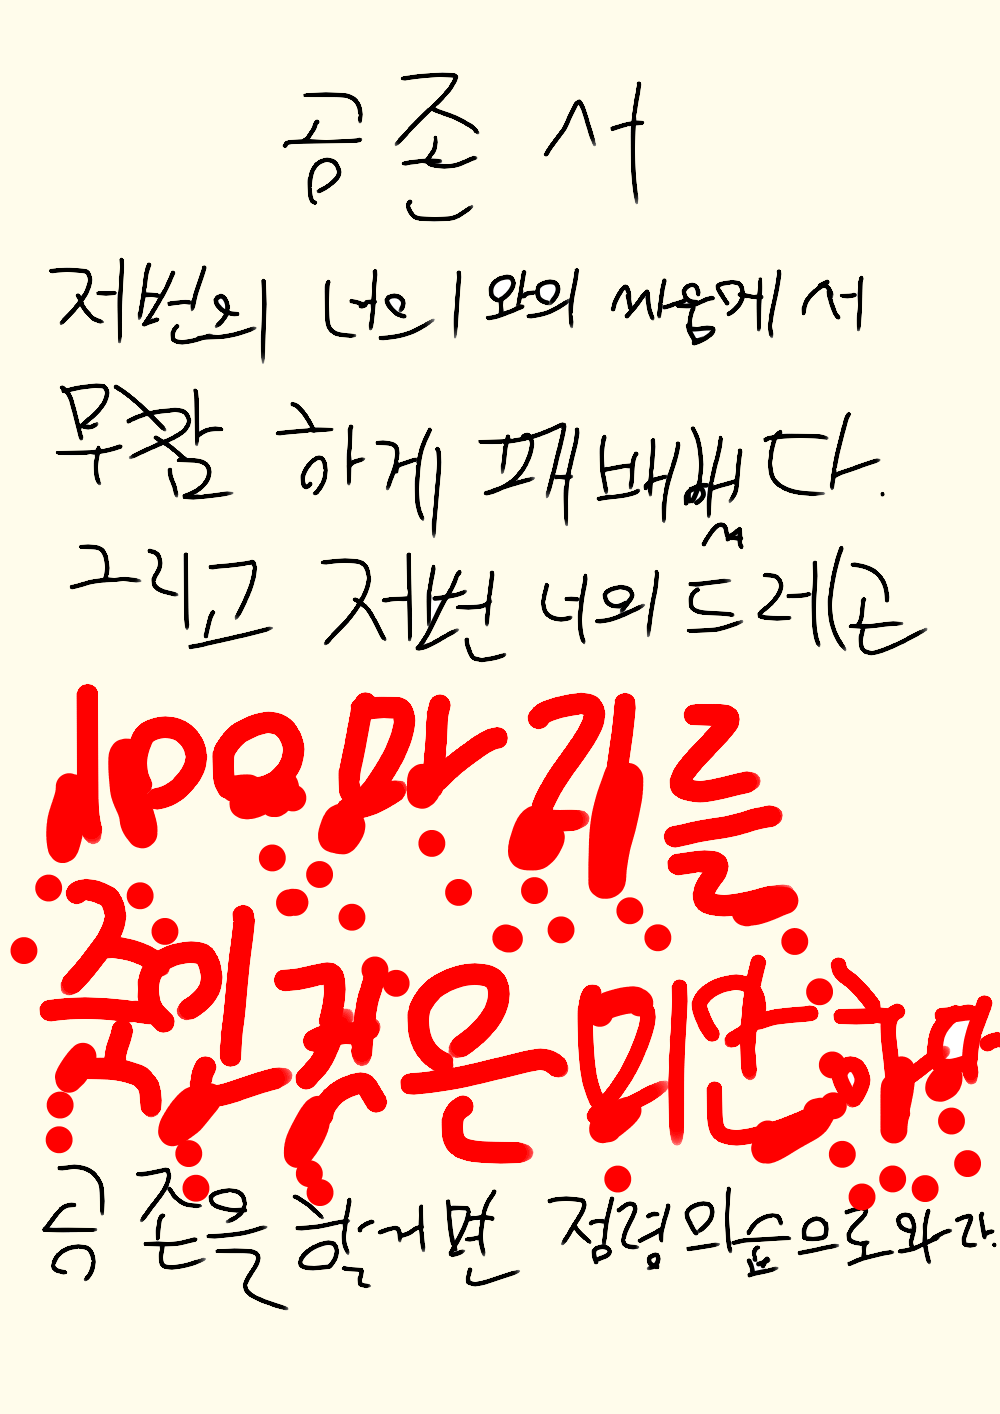 공존서
저번의 너의 와의 싸움에서
무참하게 패배했다.
그리고 저번 너의 드래곤
100마리를
죽인것은 미안하다
공존을 할거면 정령의숲으로와라.